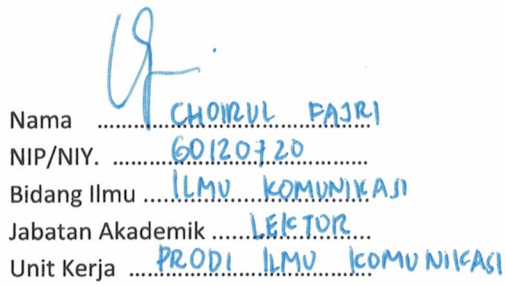 Nama ................ CHOIRUL FAJRI
NIP/NIY. ................ 60120720
Bidang Ilmu ................ ILMU KOMUNIKASI
Jabatan Akademik ................ LEKTOR
Unit Kerja ................ PRODI ILMU KOMUNIKASI